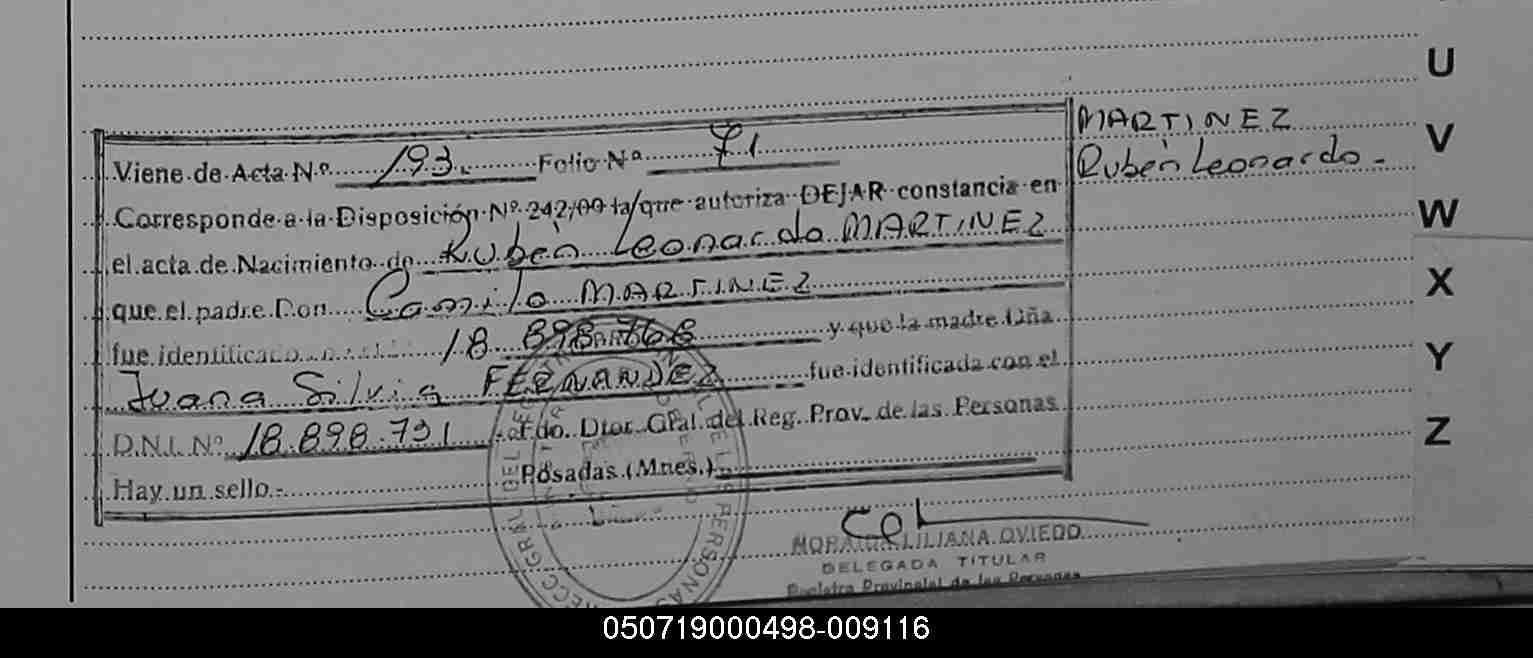 U
MARTINEZ
V
Viene de Acta N.º 193 Folio Nº 71
Rubén Leonardo -
Corresponde a la Disposición Nº 242/00 la que autoriza DEJAR constancia en
W
el acta de Nacimiento de Rubén Leonardo MARTINEZ
que el padre Don Camilo MARTINEZ
X
fue identificado 18 898 768 y que la madre Dña
Juana Silvia FERNANDEZ fue identificada con el
Y
D.N.I. Nº 18.898.791 Fdo. Dtor. Gral. del Reg. Prov. de las Personas
Z
Hay un sello.- Posadas (Mnes.)
LILIANA OVIEDO
DELEGADA TITULAR
Registro Provincial de las Personas
050719000498-009116